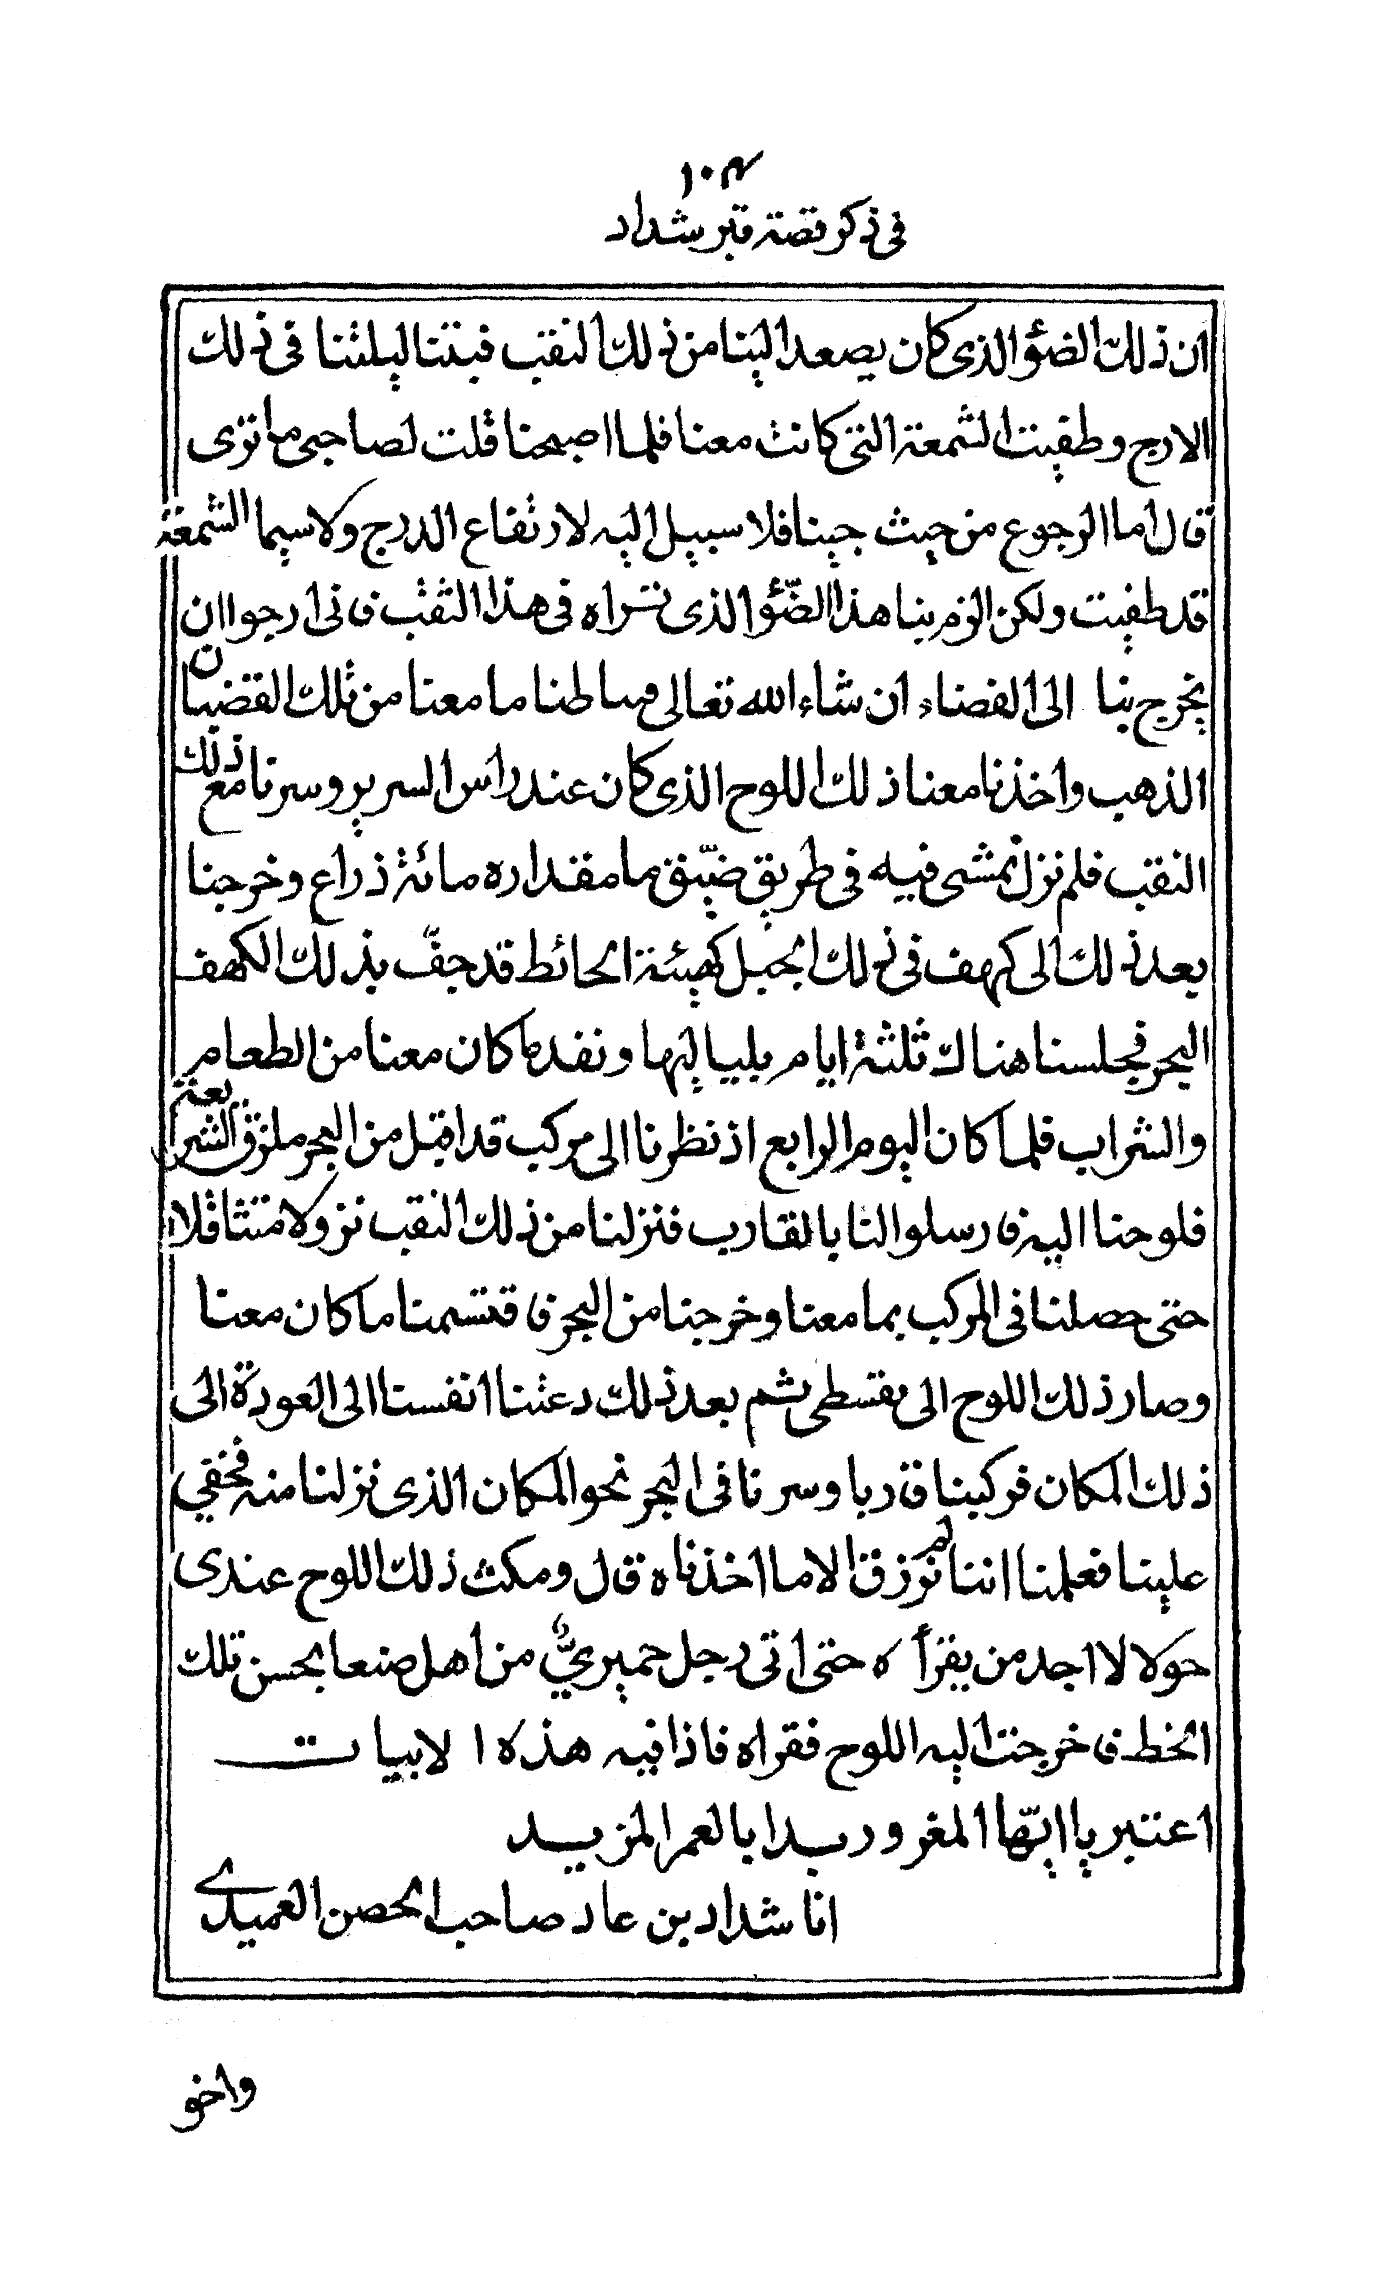 ١٠٣
في ذكر قصة قبر شداد
ان ذلك الضؤ الذي كان يصعد الينا من ذلك النقب فبتنا ليلتنا في ذلك
الارج وطفيت الشمعة التي كانت معنا فلما اصبحنا قلت لصاحبي ما ترى
قال اما الرجوع من حيث جينا فلا سبيل اليه لارتفاع الدرج ولا سيما الشمعة
قد طفيت ولكن الزم بنا هذا الضّؤ الذي نراه في هذا النقب فاني ارجوا ان
يخرج بنا الى الفضاء ان شاء الله تعالى فساطنا ما معنا من تلك القضبان
الذهب واخذنا معنا ذلك اللوح الذي كان عند راس السرير وسرنا مع ذلك
النقب فلم نزل نمشي فيه في طريق ضيّق ما مقداره مائة ذراع وخرجنا
بعد ذلك الى كهف في ذلك الجبل كهيئة الحائط قد حفّ بذلك الكهف
البحر فجلسنا هناك ثلثة ايام بلياليها ونفد ما كان معنا من الطعام
والشراب فلما كان اليوم الرابع اذ نظرنا الى مركب قد اقبل من البحر ملزق الشريعة
فلوحنا اليه فارسلوا لنا بالقارب فنزلنا من ذلك النقب نزولا متثاقلا
حتى حصلنا في المركب بما معنا وخرجنا من البحر فاقتسمنا ما كان معنا
وصار ذلك اللوح الى بقسطي ثم بعد ذلك دعتنا انفسنا الى العودة الى
ذلك المكان فركبنا قاربا وسرنا في البحر نحو المكان الذي نزلنا منه فخفي
علينا فعلمنا اننا لم نرزق الا ما اخذناه قال ومكث ذلك اللوح عندي
حولا لا اجد من يقرأه حتى اتى رجل حميريٌّ من اهل صنعا يحسن تلك
الخط فاخرجت اليه اللوح فقراه فاذا فيه هذه الابيات
اعتبر يا ايّها المغرور بدا بالعمر المزيد
انا شداد بن عاد صاحب الحصن العميدي
واخو